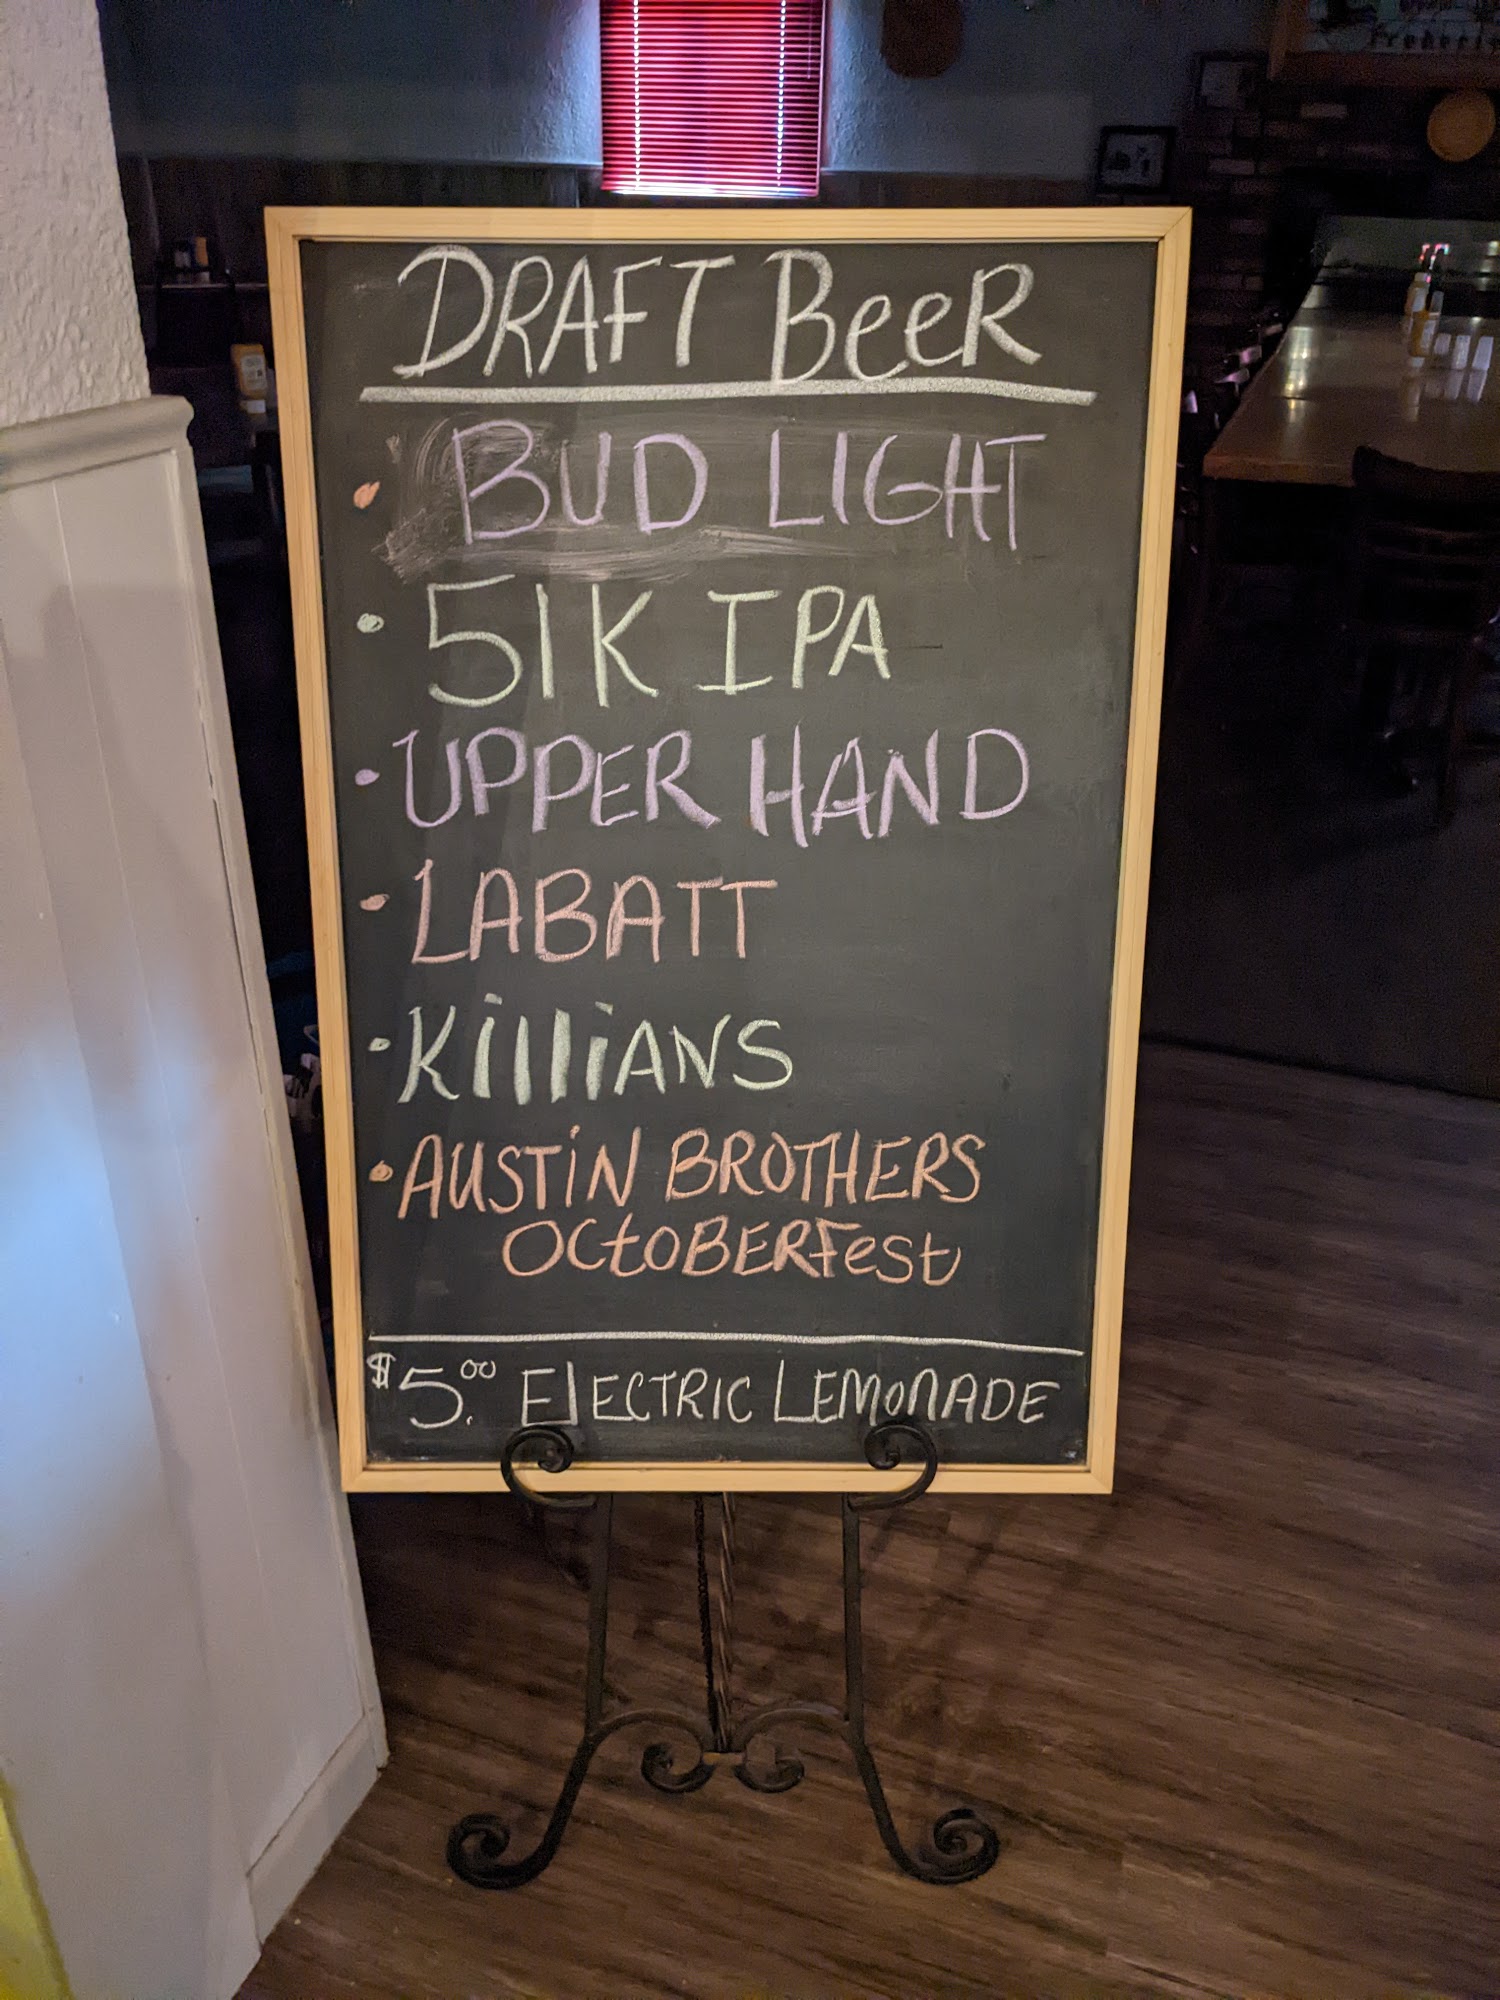 DRAFT BeeR
• BUD LIGHT
• 51K IPA
• UPPER HAND
• LABATT
• KilliANS
• AUSTiN BROTHERS
OCtOBERFest
$5.00 ElECTRIC LEMONADE